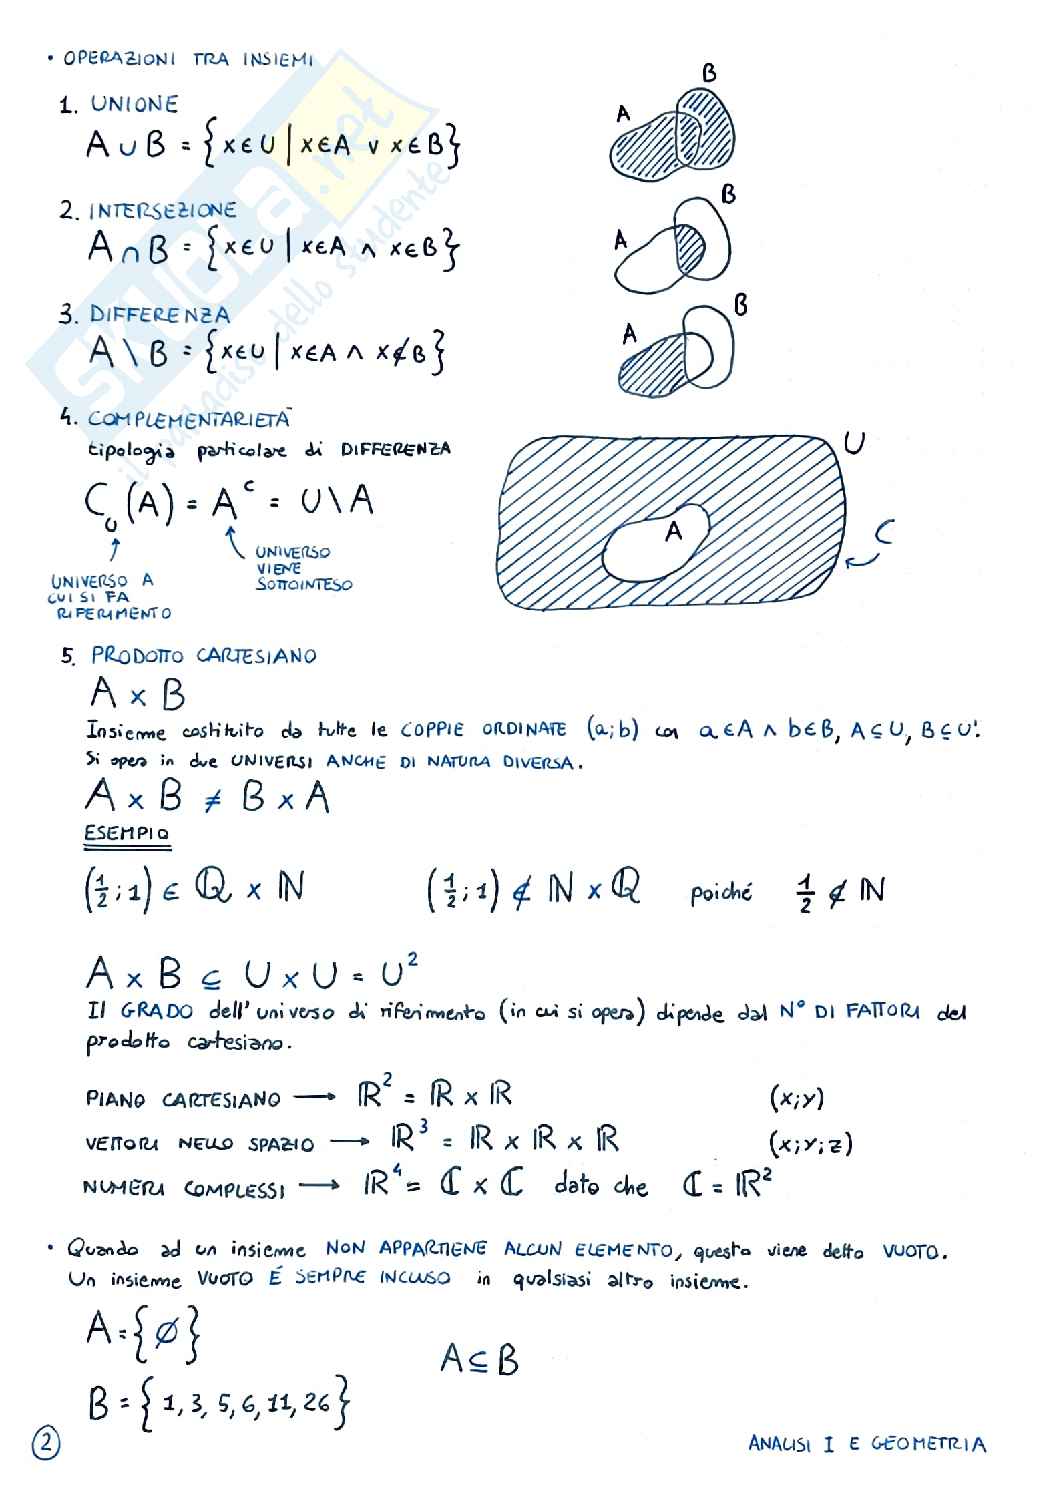 • OPERAZIONI TRA INSIEMI
1. UNIONE
A ∪ B = {x∈U | x∈A ∨ x∈B}
A B
2. INTERSEZIONE
A ∩ B = {x∈U | x∈A ∧ x∈B}
A B
3. DIFFERENZA
A \ B = {x∈U | x∈A ∧ x∉B}
A B
4. COMPLEMENTARIETÀ
tipologia particolare di DIFFERENZA
C_U (A) = A^C = U \ A
UNIVERSO A
CUI SI FA
RIFERIMENTO
UNIVERSO
VIENE
SOTTOINTESO
U
A
C
5. PRODOTTO CARTESIANO
A × B
Insieme costituito da tutte le COPPIE ORDINATE (a;b) con a∈A ∧ b∈B, A⊆U, B⊆U'.
Si opera in due UNIVERSI ANCHE DI NATURA DIVERSA.
A × B ≠ B × A
ESEMPIO
(1/2 ; 1) ∈ ℚ × ℕ (1/2 ; 1) ∉ ℕ × ℚ poiché 1/2 ∉ ℕ
A × B ⊆ U × U = U²
Il GRADO dell'universo di riferimento (in cui si opera) dipende dal N° DI FATTORI del
prodotto cartesiano.
PIANO CARTESIANO → ℝ² = ℝ × ℝ (x;y)
VETTORI NELLO SPAZIO → ℝ³ = ℝ × ℝ × ℝ (x;y;z)
NUMERI COMPLESSI → ℝ⁴ = ℂ × ℂ dato che ℂ = ℝ²
• Quando ad un insieme NON APPARTIENE ALCUN ELEMENTO, questo viene detto VUOTO.
Un insieme VUOTO É SEMPRE INCLUSO in qualsiasi altro insieme.
A = {∅}
A ⊆ B
B = {1, 3, 5, 6, 11, 26}
2
ANALISI I E GEOMETRIA
SKUOLA.net
il paradiso dello studente